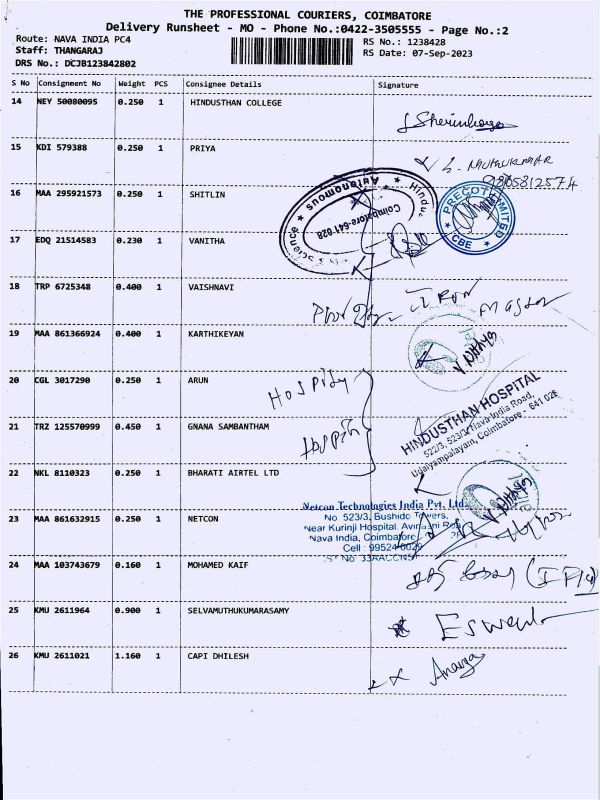 THE PROFESSIONAL COURIERS, COIMBATORE
Delivery Runsheet - MO - Phone No.:0422-3505555 - Page No.:2
Route: NAVA INDIA PC4
RS No.: 1238428
Staff: THANGARAJ
RS Date: 07-Sep-2023
DRS No.: DCJB123842802
S No Consignment No Weight PCS Consignee Details Signature
14 NEY 50080095 0.250 1 HINDUSTHAN COLLEGE
15 KDI 579388 0.250 1 PRIYA
16 MAA 295921573 0.250 1 SHITLIN
Autonomous
Hindus
Coimbatore-641 028
PRECOT LIMITED
CBE
17 EDQ 21514583 0.230 1 VANITHA
18 TRP 6725348 0.400 1 VAISHNAVI
19 MAA 861366924 0.400 1 KARTHIKEYAN
20 CGL 3017290 0.250 1 ARUN
HINDUSTHAN HOSPITAL
522/3, 523/3, Nava India Road,
Udaiyampalayam, Coimbatore - 641 028
21 TRZ 125570999 0.450 1 GNANA SAMBANTHAM
22 NKL 8110323 0.250 1 BHARATI AIRTEL LTD
Netcon Technologies India Pvt. Ltd.
No. 523/3, Bushido Towers,
Near Kurinji Hospital, Avinashi Road
Nava India, Coimbatore
Cell : 99524
23 MAA 861632915 0.250 1 NETCON
24 MAA 103743679 0.160 1 MOHAMED KAIF
25 KMU 2611964 0.900 1 SELVAMUTHUKUMARASAMY
26 KMU 2611021 1.160 1 CAPI DHILESH